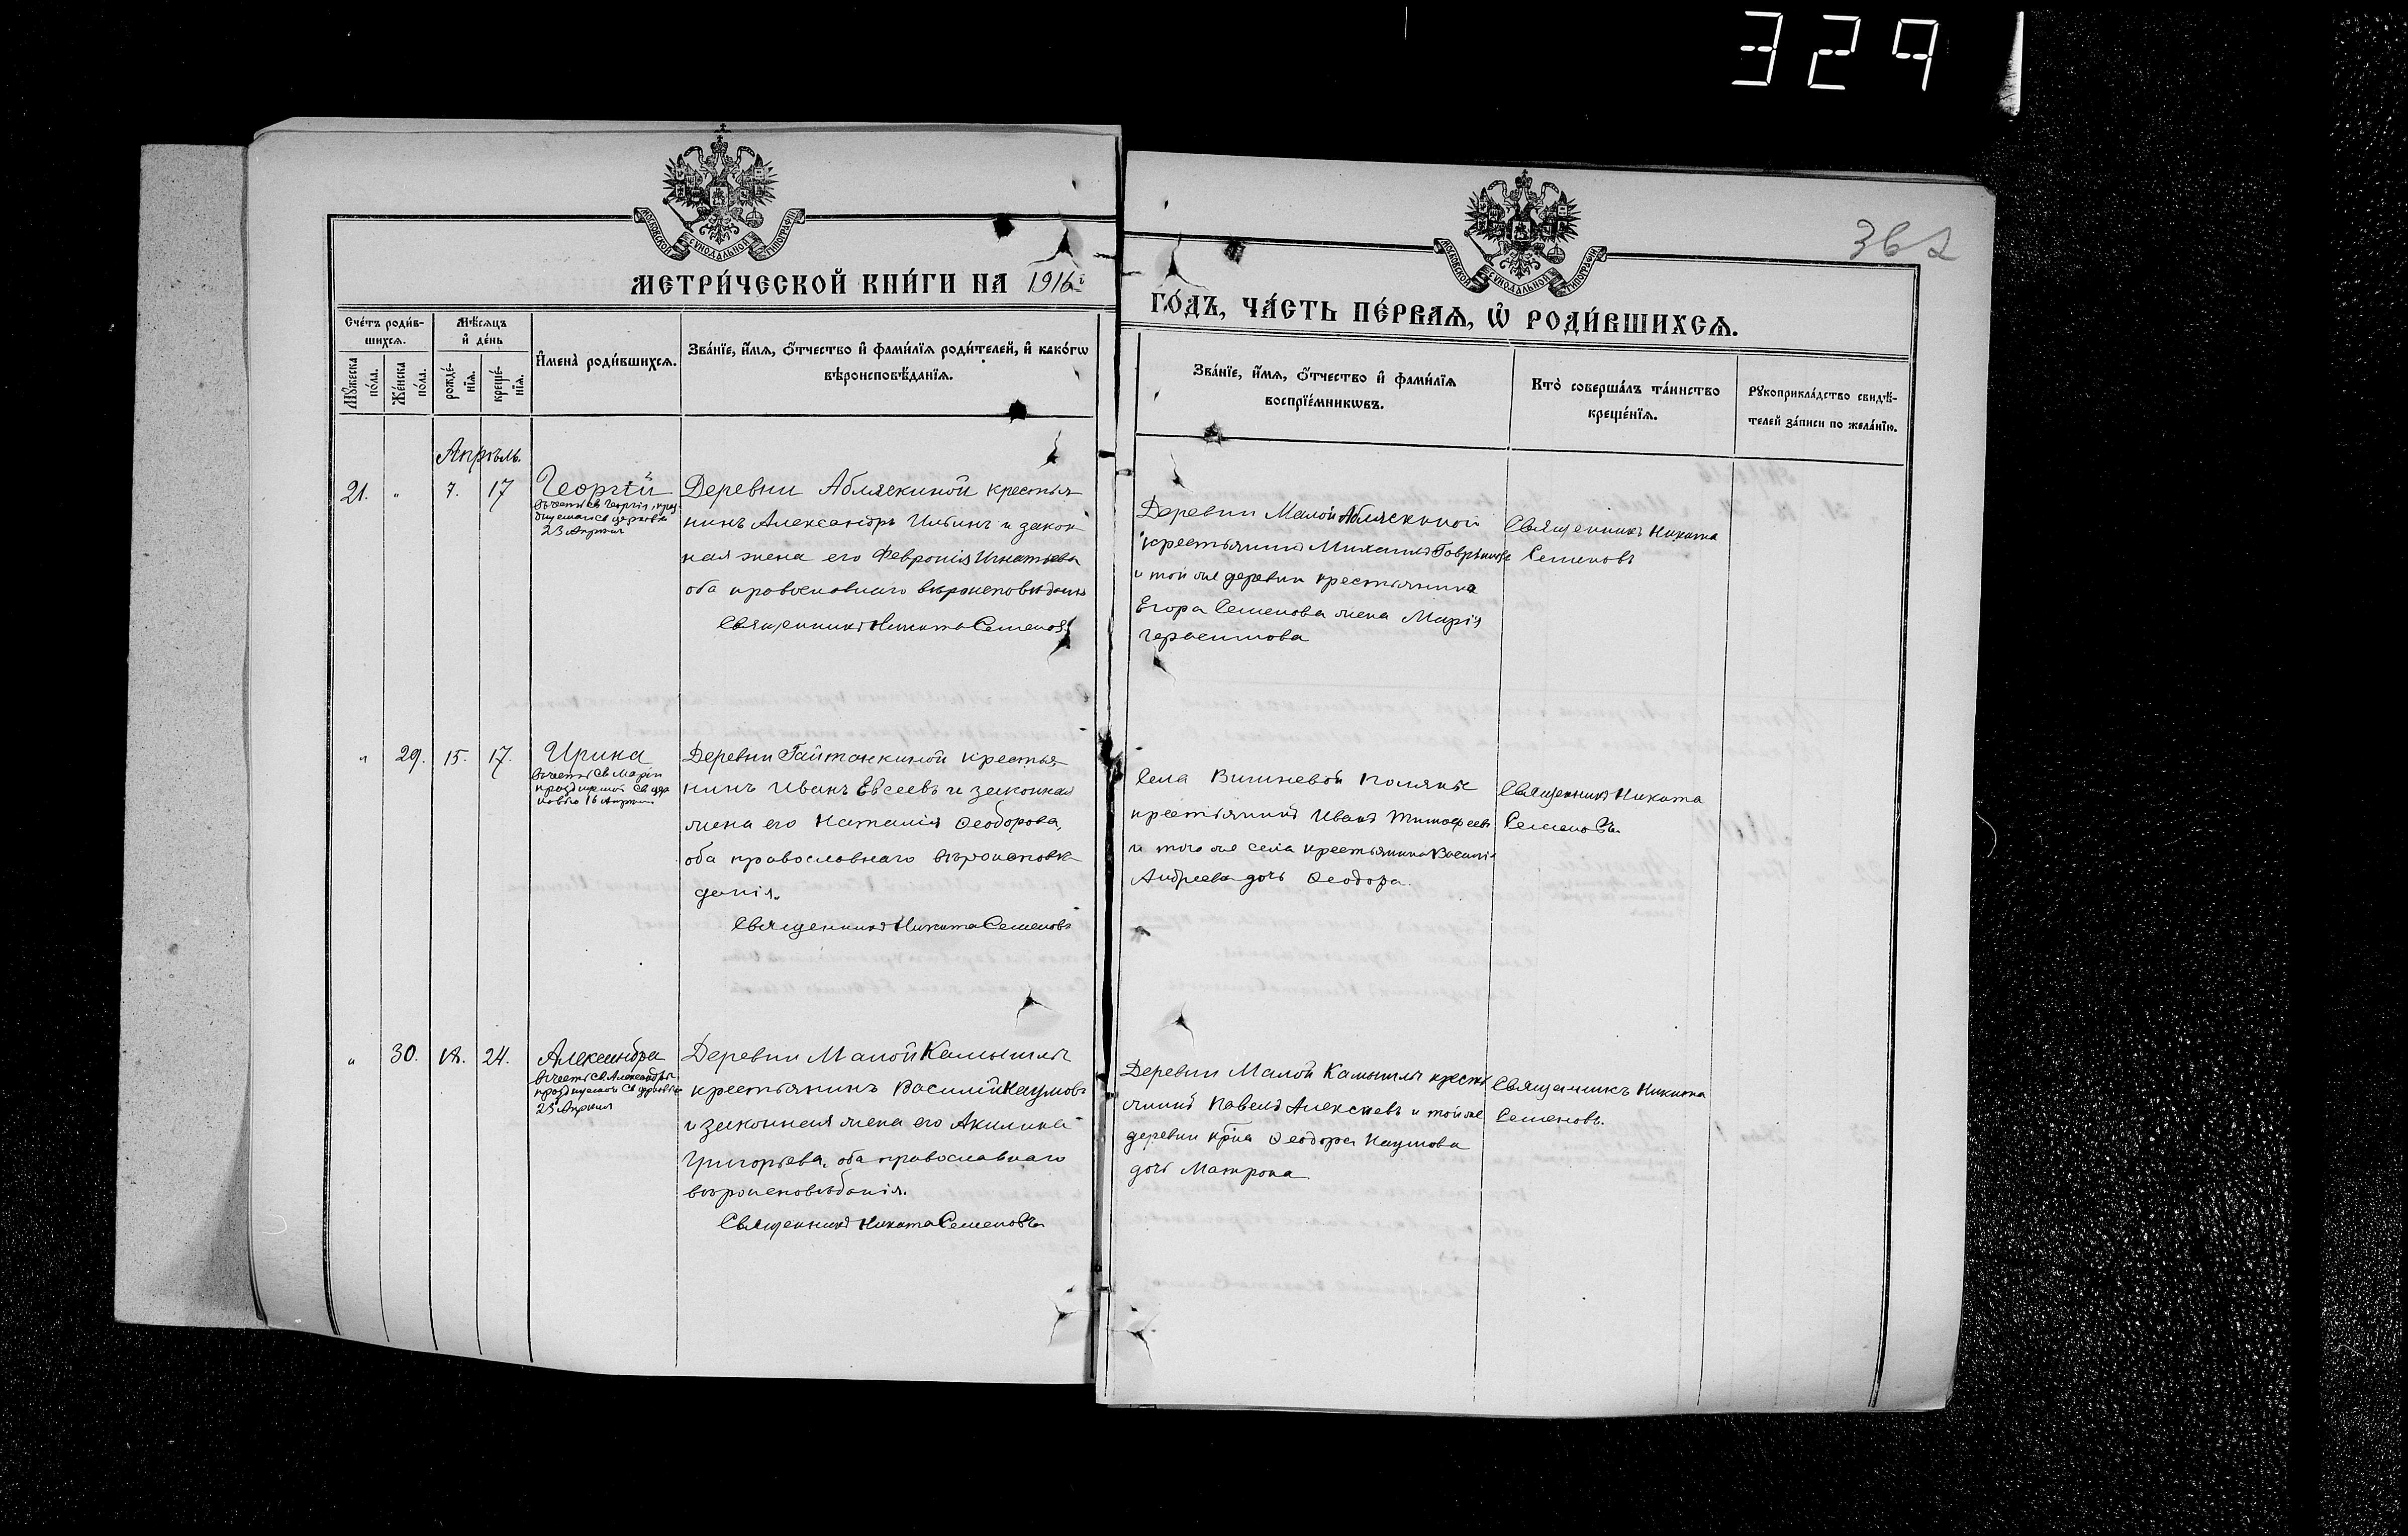 329
362
МОСКОВСКОЙ СѴНОДАЛЬНОЙ ТИПОГРАФІИ
МОСКОВСКОЙ СѴНОДАЛЬНОЙ ТИПОГРАФІИ
МЕТРИ́ЧЕСКОЙ КНИ́ГИ НА 1916 г
ГО́ДЪ, ЧА́СТЬ ПЕ́РВАѦ, Ѡ҆ РОДИ́ВШИХСѦ.
Сче́тъ роди́в-
шихсѧ.
Мꙋ́жеска по́ла.
Же́нска по́ла.
Мѣ́сѧцъ
и҆ де́нь
рожде́-
нїѧ.
креще́-
нїѧ.
И҆мена̀ роди́вшихсѧ.
Зва́нїе, и҆́мѧ, ѻ҆́тчество и҆ фами́лїѧ роди́телей, и҆ како́гѡ
вѣроисповѣ́данїѧ.
Зва́нїе, и҆́мѧ, ѻ҆́тчество и҆ фами́лїѧ
воспрїе́мникѡвъ.
Кто̀ соверша́лъ та́инство
креще́нїѧ.
Рꙋкоприкла́дство свидѣ́-
телей за́писи по жела́нїю.
Апрѣль.
21. " 7. 17
Георгій
въ честь св Георгія, праз
днуемаго св церковью
23 Апрѣля
Деревни Абляскиной крестья
нинъ Александръ Ильинъ и закон
ная жена его Февронія Игнатьева
оба православнаго вѣроисповѣданія
Священникъ Никита Семеновъ
Деревни Малой Абляскиной
крестьянинъ Михаилъ Гаврииловъ
и той же деревни крестьянина
Егора Семенова жена Марія
Герасимова
Священникъ Никита
Семеновъ
" 29. 15. 17.
Ирина
въ честь св Маріи
празднуемой св цер
ковью 16 Апрѣля
Деревни Гайтанкиной крестья
нинъ Иванъ Евсеевъ и законная
жена его Наталія Ѳеодорова,
оба православнаго вѣроисповѣ
данія.
Священникъ Никита Семеновъ
Села Вишневой Поляны
крестьянинъ Иванъ Тимофеевъ
и того же села крестьянина Василія
Андреева дочь Ѳеодора.
Священникъ Никита
Семеновъ.
" 30. 18. 24.
Александра
въ честь св. Александры,
празднуемой св церковью
23 Апрѣля
Деревни Малой Камышлы
крестьянинъ Василій Наумовъ
и законная жена его Акилина
Григорьева, оба православнаго
вѣроисповѣданія.
Священникъ Никита Семеновъ
Деревни Малой Камышлы кресть
янинъ Павелъ Алексѣевъ и той же
деревни кр̃на Ѳеодора Наумова
дочь Матрона
Священникъ Никита
Семеновъ.